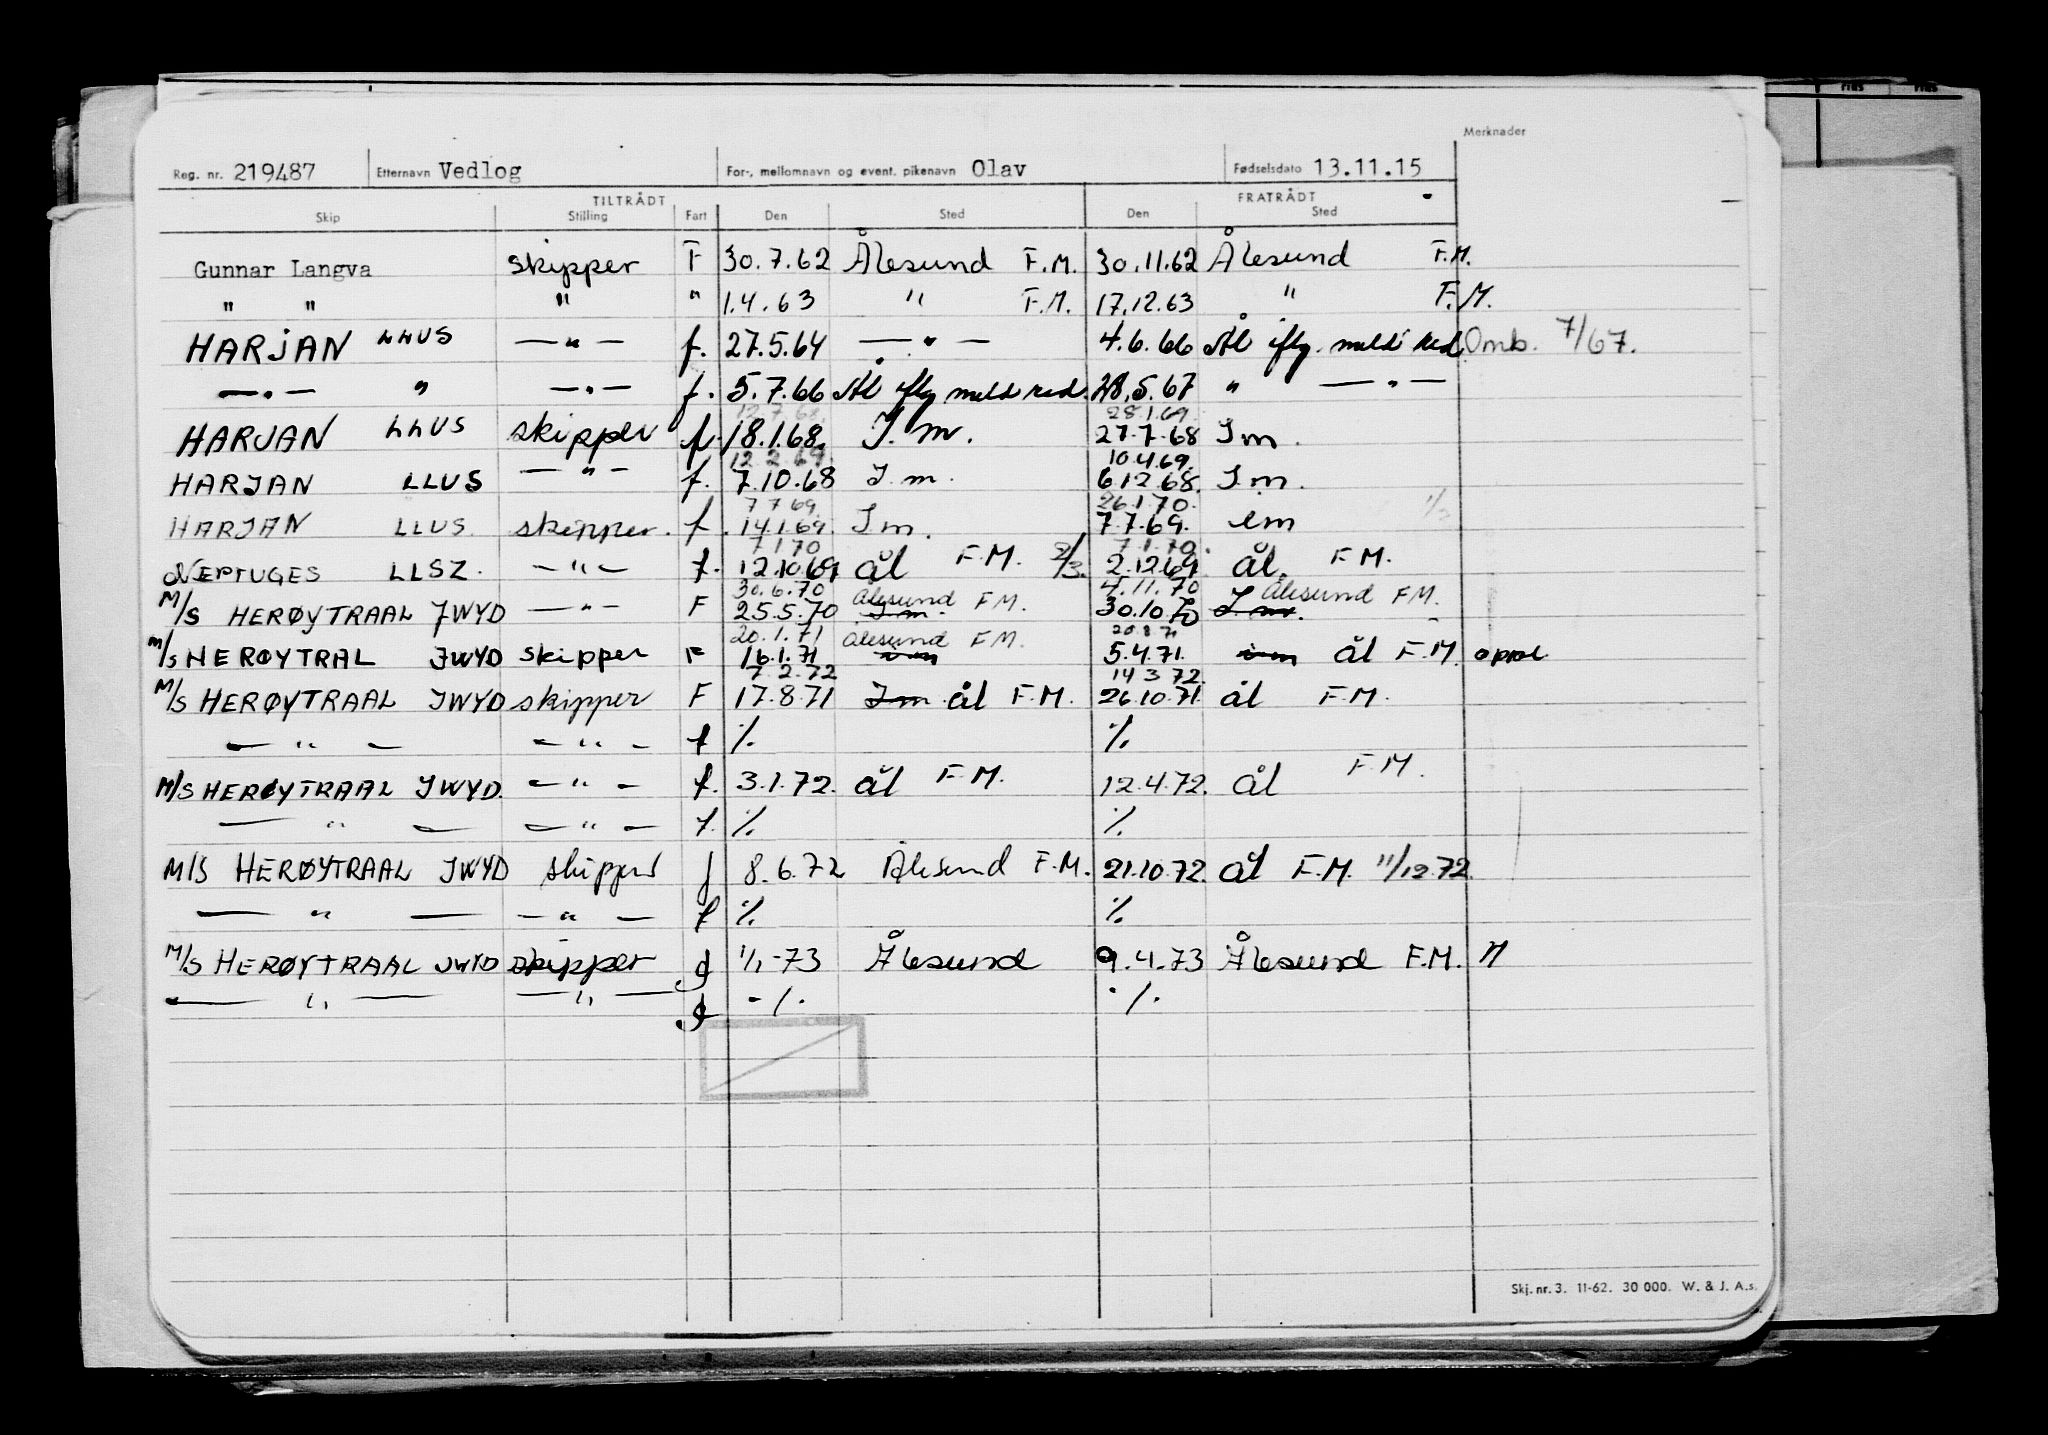 Merknader
Reg. nr. 219487 Etternavn Vedlog For-, mellomnavn og event. pikenavn Olav Fødselsdato 13.11.15
TILTRÅDT FRATRÅDT
Skip Stilling Fart Den Sted Den Sted
Gunnar Langva skipper F 30.7.62 Ålesund F.M. 30.11.62 Ålesund F.M.
" " " " 1.4.63 " F.M. 17.12.63 " F.M.
HARJAN LLUS — " — f. 27.5.64 — " — 4.6.66 Ål iflg. meld red Omb. 7/67.
— " — " — " — f. 5.7.66 Ål iflg meld red. 28.5.67 " — " —
12.7.68. 28.1.69.
HARJAN LLUS skipper f. 18.1.68. I.m. 27.7.68 I m.
12.2.69. 10.4.69.
HARJAN LLUS — " — f. 7.10.68 I.m. 6.12.68. I.m.
7 7 69. 26.1.70.
HARJAN LLUS. skipper. f. 14.1.69. I m. 7.7.69. im
7 1 70 7.1.70.
NEPTUGES LLSZ. — " — f. 12.10.69 ål F.M. 2/3. 2.12.69 ål. F.M.
30.6.70 Ålesund F.M. 4.11.70 Ålesund F.M.
M/S HERØYTRAAL JWYD — " — F 25.5.70 I.m. 30.10.70 I.m.
20.1.71 Ålesund F.M. 20.8.71
M/S HERØYTRAL JWYD skipper F 16.1.71 im 5.4.71. im ål F.M.
7.2.72 14 3 72.
M/S HERØYTRAAL JWYD skipper F 17.8.71 I m ål F.M. 26.10.71 ål F.M.
— " — — " — f % %
M/S HERØYTRAAL JWYD. — " — f. 3.1.72. ål F.M. 12.4.72. ål F.M.
— " — — " — f. % %
M/S HERØYTRAAL JWYD skipper f 8.6.72 Ålesund F.M. 21.10.72. ål F.M. 11/12.72.
— " — — " — f % %
M/S HERØYTRAAL JWYD skipper f 1/1-73 Ålesund 9.4.73 Ålesund F.M. "
— " — — " — f -/. ./.
Skj. nr. 3. 11-62. 30 000. W. & J. A.s.